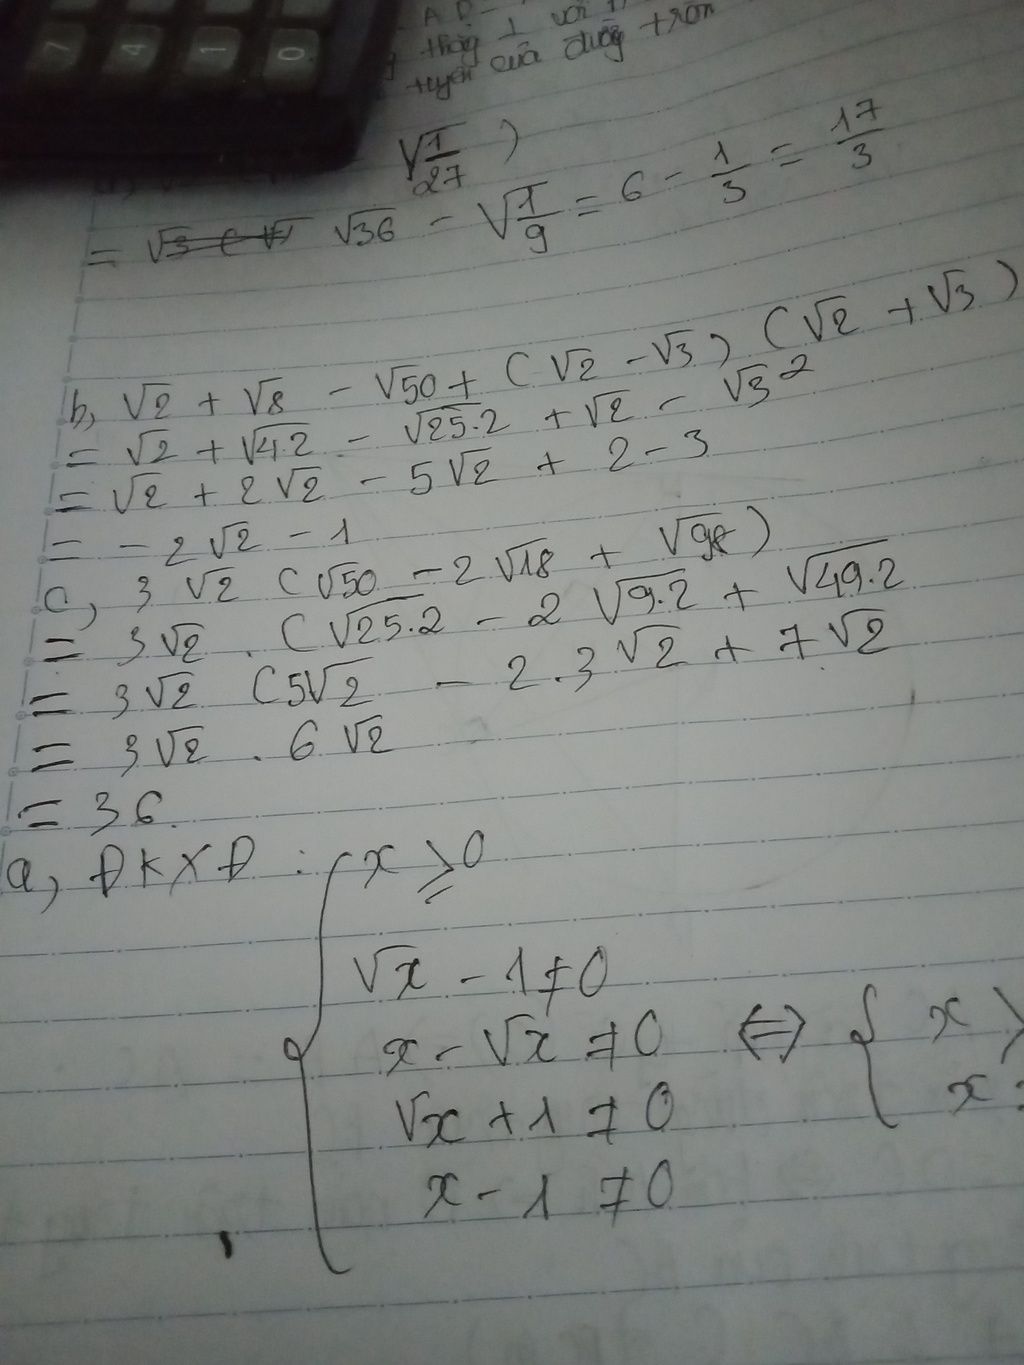 7 4 1 0
tuyến của đường tròn
√1/27 )
= √36 - √1/9 = 6 - 1/3 = 17/3
b, √2 + √8 - √50 + (√2 - √3) (√2 + √3)
= √2 + √4.2 - √25.2 + √2 - √3²
= √2 + 2√2 - 5√2 + 2 - 3
= -2√2 - 1
c, 3√2 (√50 - 2√18 + √98)
= 3√2 . (√25.2 - 2√9.2 + √49.2
= 3√2 (5√2 - 2.3√2 + 7√2
= 3√2 . 6√2
= 36
a, ĐKXĐ : { x ≥ 0
√x - 1 ≠ 0
x - √x ≠ 0 ⇔ { x >
√x + 1 ≠ 0 x
x - 1 ≠ 0